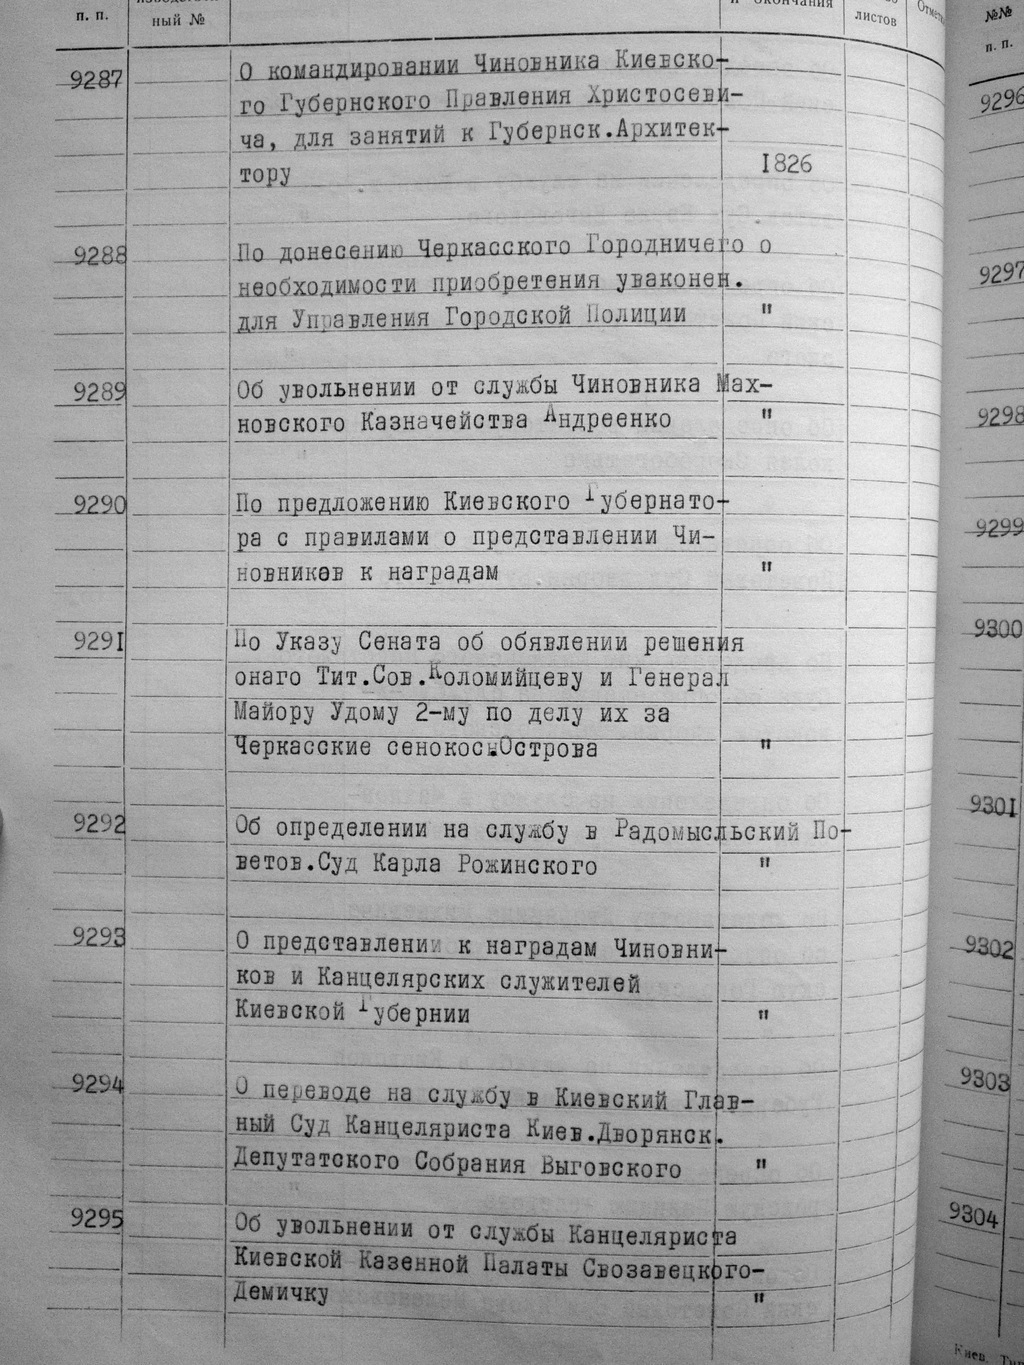 п. п.
ный №
и окончания
листов
№№
п. п.
9287
О командировании Чиновника Киевско-
го Губернского Правления Христосеви-
ча, для занятий к Губернск.Архитек-
тору 1826
9288
По донесению Черкасского Городничего о
необходимости приобретения уваконен.
для Управления Городской Полиции "
9289
Об увольнении от службы Чиновника Мах-
новского Казначейства Андреенко "
9290
По предложению Киевского Губернато-
ра с правилами о представлении Чи-
новников к наградам "
9291
По Указу Сената об обявлении решения
онаго Тит.Сов.Коломийцеву и Генерал
Майору Удому 2-му по делу их за
Черкасские сенокосн.Острова "
9292
Об определении на службу в Радомысльский По-
ветов.Суд Карла Рожинского "
9293
О представлении к наградам Чиновни-
ков и Канцелярских служителей
Киевской Губернии "
9294
О переводе на службу в Киевский Глав-
ный Суд Канцеляриста Киев.Дворянск.
Депутатского Собрания Выговского "
9295
Об увольнении от службы Канцеляриста
Киевской Казенной Палаты Свозавецкого-
Демичку "
9296
9297
9298
9299
9300
9301
9302
9303
9304
Киев.